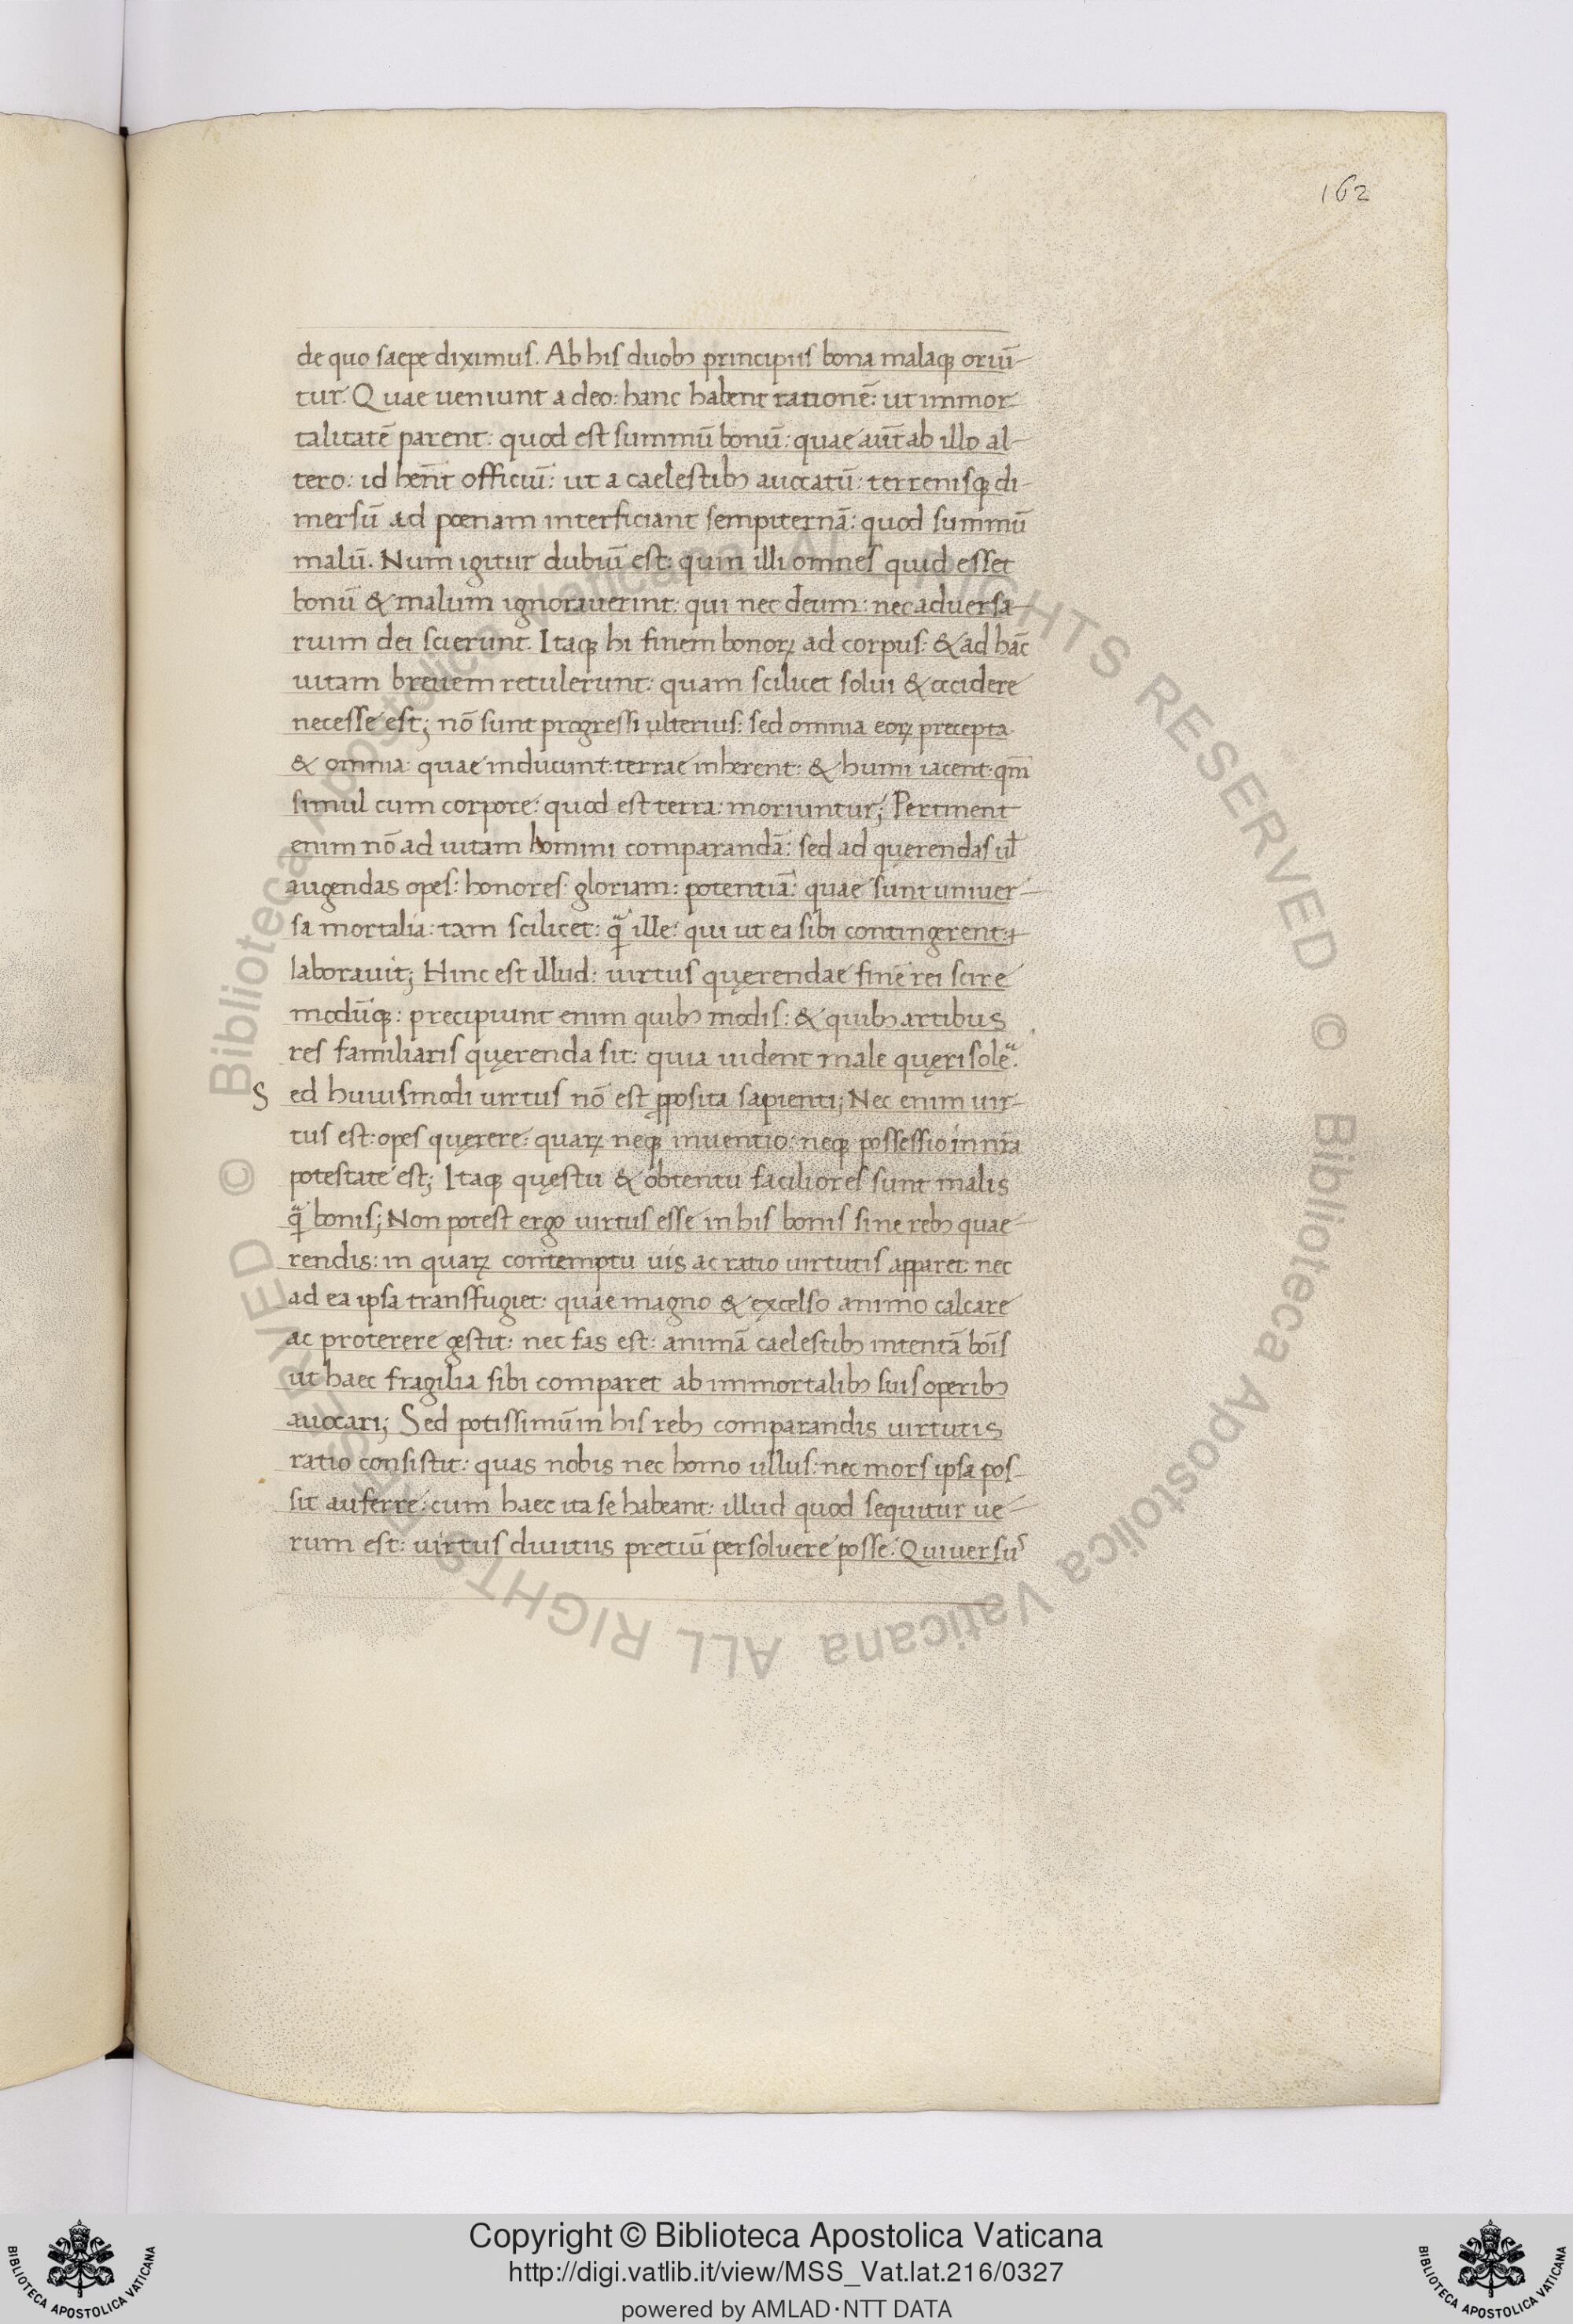 162
de quo saepe diximus. Ab his duobꝫ principiis bona malaqꝫ oriū-
tur. Quae ueniunt a deo: hanc habent rationē: ut immor-
talitatē parent: quod est summū bonū: quae aūt ab illo al-
tero: id hēnt officiū: ut a caelestibꝫ auocatū: terrenisqꝫ di-
mersū ad pœnam interficiant sempiternā: quod summū
malū. Num igitur dubiū est: quin illi omnes quid esset
bonū & malum ignorauerint: qui nec deum: nec aduersa-
rium dei scierunt. Itaqꝫ hi finem bonoꝝ ad corpus: & ad hāc
uitam breuem retulerunt: quam scilicet solui & occidere
necesse est; nō sunt progressi ulterius: sed omnia eoꝝ precepta
& omnia: quae inducunt: terrae inherent: & humi iacent: qm̄
simul cum corpore: quod est terra: moriuntur; Pertinent
enim nō ad uitam homini comparandā: sed ad querendas ul̄
augendas opes: honores: gloriam: potentiā: quae sunt uniuer-
sa mortalia: tam scilicet: qᷓ ille: qui ut ea sibi contingerent:
laborauit; Hinc est illud: uirtus quęrendae finē rei scire
modūqꝫ: precipiunt enim quibꝫ modis: & quibꝫ artibus
res familiaris quęrenda sit: quia uident male quęri soleᷓ.
Sed huiusmodi uirtus nō est ꝓposita sapienti; Nec enim uir-
tus est: opes quęrere: quaꝝ neqꝫ inuentio: neqꝫ possessio in nr̄a
potestate est; Itaqꝫ quęstu & obtentu faciliores sunt malis
qᷓ bonis; Non potest ergo uirtus esse in his bonis sine rebꝫ quae-
rendis: in quaꝝ contemptu uis ac ratio uirtutis apparet: nec
ad ea ipsa transfugiet: quae magno & excelso animo calcare
ac proterere gestit: nec fas est: animā caelestibꝫ intentā boīs
ut haec fragilia sibi comparet ab immortalibꝫ suis operibꝫ
auocari; Sed potissimū in his rebꝫ comparandis uirtutis
ratio consistit: quas nobis nec homo ullus: nec mors ipsa pos-
sit auferre: cum haec ita se habeant: illud quod sequitur ue-
rum est: uirtus diuitiis pretiū persoluere posse. Qui uersus
© Biblioteca Apostolica Vaticana ALL RIGHTS RESERVED © Biblioteca Apostolica Vaticana ALL RIGHTS RESERVED
Copyright © Biblioteca Apostolica Vaticana
http://digi.vatlib.it/view/MSS_Vat.lat.216/0327
powered by AMLAD·NTT DATA
BIBLIOTECA APOSTOLICA VATICANA
BIBLIOTECA APOSTOLICA VATICANA